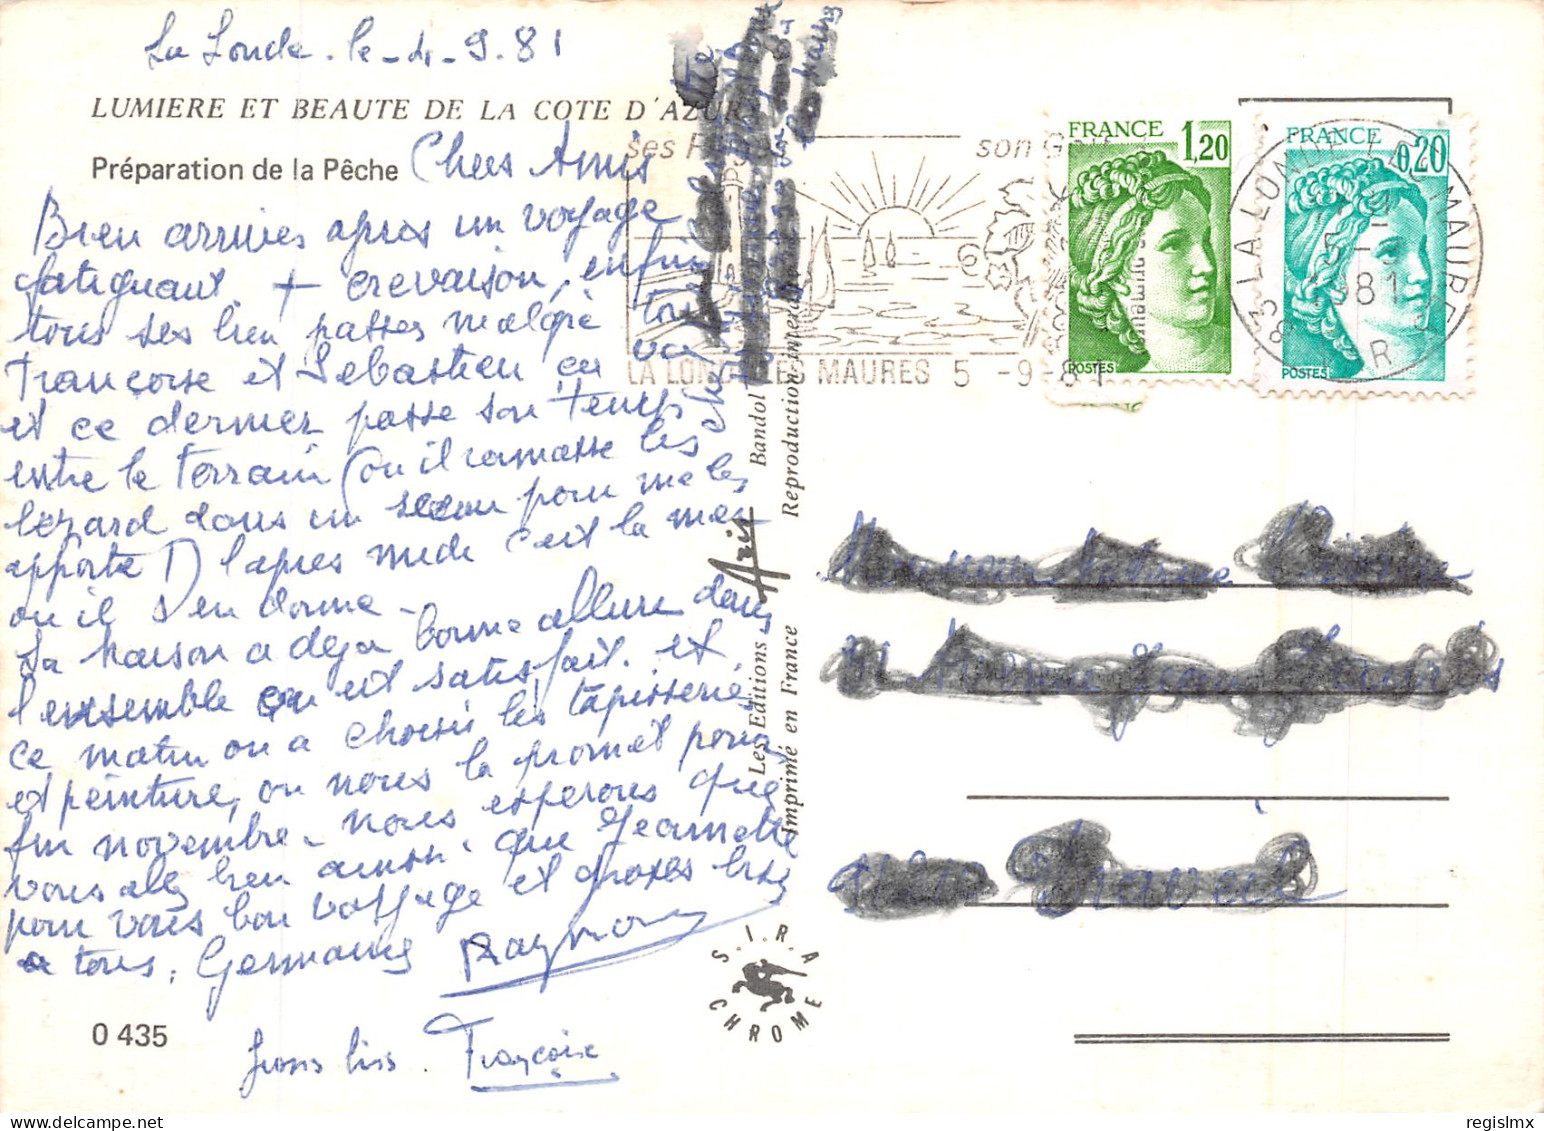 La Londe. le 4-9.81
LUMIERE ET BEAUTE DE LA COTE D'AZUR
Préparation de la Pêche
Chers Amis
Bien arrivés après un voyage
fatiguant + crevaison, enfin
tous ses bien passés malgré tout
Françoise et Sébastien en va
et ce dernier passe son temps
entre le terrain (où il ramasse les
lézard dans un seau pour me les
apporte !) l'après midi c'est la mer
où il s'en donne -
La maison a déjà bonne allure dans
l'ensemble on est satisfait. et
ce matin on a choisi les tapisserie
et peinture, on nous la promet pour
fin novembre - nous esperons que
vous alez bien ainsi que Jeannette
pour vous bon voyage et grosses bises
a tous, Germaine Raymond
grosses bises. Françoise
0 435
Les Editions Aris Bandol
Imprimé en France Reproduction interdite
S.I.R.A
CHROME
ses son
LA LONDE LES MAURES 5 -9-81
FRANCE 1,20
POSTES
FRANCE 0,20
POSTES
83 LA LONDE LES MAURES
5-9
1981
VAR
regislmx